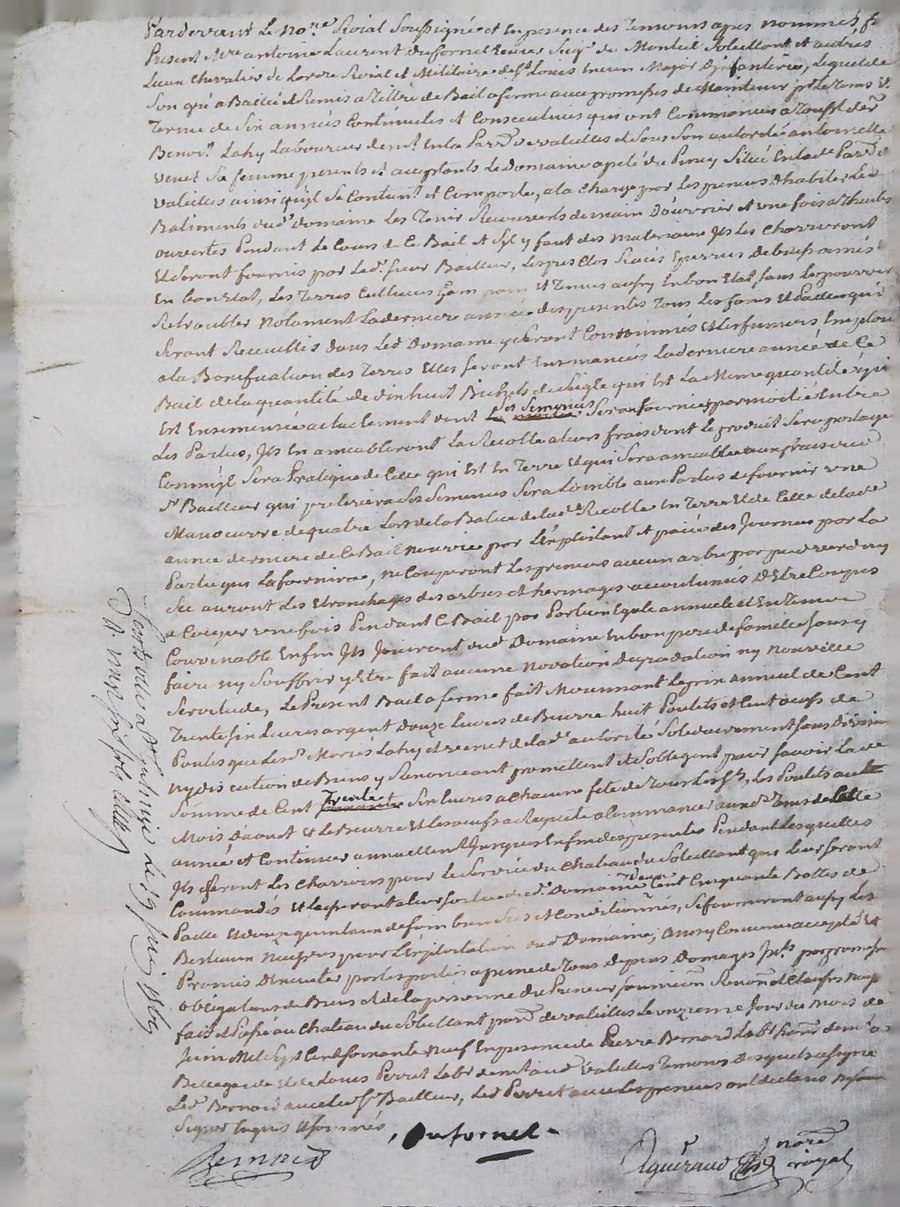 Pardevant Le No.re Roial Soussigné et En presence des Temoins apres nommés, fu
Present M.re antoine Laurent dufornel Ecuier Seig.r de Monteil Soleillant et autres
Lieux Chevalier de Lordre Roial et Militaire de S.t Louis ancien Major Dinfanterie, Lequel de
Son gré a Baillé et Remis a Tiltre de Bail a ferme avec promesses de Maintenir p.r Le Tems &
Terme de Six années Continuelles et Consecutives qui ont Commencées a Toussts. der.r
Benoi.t Lahy Laboureur dem.t En la Par.e de valeilles et Sous Son autorité antoinette
venet Sa femme presents et acceptants Le domaine apelé du Situé En lad.e Par.e de
valeilles ainsi quil Se Contient et Comporte, a la Charge par les preneurs Dhabiter Les
Batiments dud. domaine Les Tenir Recouverts de main Douvrier et une fois a Thuiles
ouvertes Pendant Le Cours de Ce Bail et Sil y faut des materiaux Ils Les Charrieront
Et Seront fournis par Led. Sieur Bailleur, Les pres Clos
En bon Etat, Les Terres Cultivées et Tenues aussy En bon Etat Sans Les pouvoir
Retroubler Notament La derniere année des presentes Tous Les foins et Pailles qui
Seront Recueillis dans Led. Domaine y Seront Consommés et Les fumiers Emploiés
a la Bonification des Terres Elles Seront Ensemancées La derniere année de Ce
Bail de La quantité de vinhuit Bichets de Seigle qui Est La Meme quantité qui
Est Ensemensée actuelement dont Les Semences Seront fournies par moitié Entre
Les Parties, Ils En ameubleront La Recolte a leurs frais dont Le produit Sera partagé
Comme il Sera Pratiqué de Celle qui Est En Terre Et qui Sera ameublée aux frais dud.
S.r Bailleur qui prelevera Ses Semences Sera Loisible aux Parties de fournir une
Manoeuvre de quatre Lors de La Batue de lad.e Recolte En Terre Et de Celle de lad.e
année derniere de Ce Bail nourrie par L'Exploitant et païée des Journées par La
Partie qui La fournira, ne Couperont Les preneurs aucun arbre par pied verd ny
Sec auront Les Etronchages des arbres et herniages accoutumés D'Etre Coupés
a Couper une fois Pendant Le Bail par Portion Egale annuele et En Tems
Convenable Enfin Ils Jouiront dud. Domaine En bon pere de famille Sans y
faire ny Souffrir y Etre fait aucune Novation Degradation ny Nouvelle
Servitude, Le Present Bail a ferme fait Moiennant Le prix annuel de Cent
Trente Six Livres argent Douze Livres de Beurre huit Poulets et Cent oeufs de
Poules que Les d. Mariés Lahy et venet de lad.e autorité Solidairement Sans Division
ny discution de Biens y Renonceant promettent et S'obligent paier Savoir La de
Somme de Cent Trente Six Livres a Chacune fete de Tous Les S.ts, Les Poulets au
Mois Daoust Et Le Beurre Et Les oeufs a Requete a Commancer aux d. Tems de Cette
année et Continuer annuellem.t Jusques En fin des presentes Pendant Lesquelles
Ils fferont Les Charrois pour Le Service du Chateau du Soleillant qui Leur Seront
Commandés Et Laisseront a leur Sortie dud. Domaine deux Cent Cinquante Bottes de
Paille Et deux quintaux de foin bien Secs et Conditionnés, Se fourniront aussy Les
Bestiaux Necess.res pour L'Exploitation dud. Domaine, ainsy Convenu accepté Et
Promis Executer par Les parties a peine de Tous depens Domages Int.s par promesses
obligations de Biens et de la personne du Preneur Soumission Renon.on et Clauses
fait et Passé au Chateau du Soleillant par.e de valeilles Le onzieme Jour du Mois de
Juin Mil Sept Cent Soixante Neuf En presence de Pierre Bernard Lab.r hab. dem.t a
Bellegarde Et de Louis Perret Lab.r dem.t aud. valeilles Temoins Desquels a Signé
Led. Bernard avec Led. S.r Bailleur, Led. Perret avec Les preneurs ont declaré ne Savoir
Signer Enquis Et Sommés
Dufornel
Bernard
Aguiraud no.re roiyal
Controllé a Le 19 Juin 1769